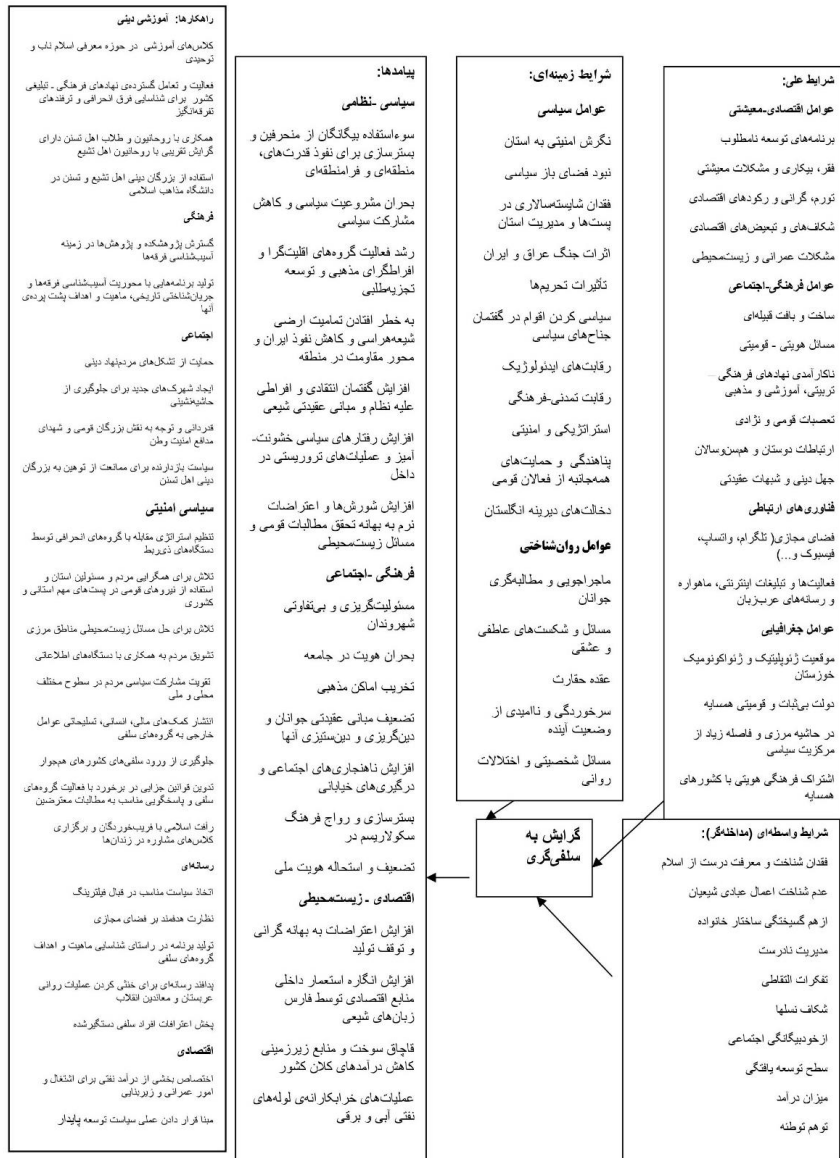 شرایط علی:
عوامل اقتصادی-معیشتی
برنامه‌های توسعه نامطلوب
فقر، بیکاری و مشکلات معیشتی
تورم، گرانی و رکودهای اقتصادی
شکاف‌های و تبعیض‌های اقتصادی
مشکلات عمرانی و زیست‌محیطی
عوامل فرهنگی-اجتماعی
ساخت و بافت قبیله‌ای
مسائل هویتی - قومیتی
ناکارآمدی نهادهای فرهنگی –
تربیتی، آموزشی و مذهبی
تعصبات قومی و نژادی
ارتباطات دوستان و هم‌سن‌وسالان
جهل دینی و شبهات عقیدتی
فناوری‌های ارتباطی
فضای مجازی( تلگرام، واتساپ،
فیسبوک و...)
فعالیت‌ها و تبلیغات اینترنتی، ماهواره
و رسانه‌های عرب‌زبان
عوامل جغرافیایی
موقعیت ژئوپلیتیک و ژئواکونومیک
خوزستان
دولت بی‌ثبات و قومیتی همسایه
در حاشیه مرزی و فاصله زیاد از
مرکزیت سیاسی
اشتراک فرهنگی هویتی با کشورهای
همسایه
شرایط واسطه‌ای (مداخله‌گر):
فقدان شناخت و معرفت درست از اسلام
عدم شناخت اعمال عبادی شیعیان
ازهم گسیختگی ساختار خانواده
مدیریت نادرست
تفکرات التقاطی
شکاف نسلها
ازخودبیگانگی اجتماعی
سطح توسعه یافتگی
میزان درآمد
توهم توطئه
شرایط زمینه‌ای:
عوامل سیاسی
نگرش امنیتی به استان
نبود فضای باز سیاسی
فقدان شایسته‌سالاری در
پست‌ها و مدیریت استان
اثرات جنگ عراق و ایران
تأثیرات تحریم‌ها
سیاسی کردن اقوام در گفتمان
جناح‌های سیاسی
رقابت‌های ایدئولوژیک
رقابت تمدنی-فرهنگی
استراتژیکی و امنیتی
پناهندگی و حمایت‌های
همه‌جانبه از فعالان قومی
دخالت‌های دیرینه انگلستان
عوامل روان‌شناختی
ماجراجویی و مطالبه‌گری
جوانان
مسائل و شکست‌های عاطفی
و عشقی
عقده حقارت
سرخوردگی و ناامیدی از
وضعیت آینده
مسائل شخصیتی و اختلالات
روانی
گرایش به
سلفی‌گری
پیامدها:
سیاسی -نظامی
سوءاستفاده بیگانگان از منحرفین و
بسترسازی برای نفوذ قدرت‌های،
منطقه‌ای و فرامنطقه‌ای
بحران مشروعیت سیاسی و کاهش
مشارکت سیاسی
رشد فعالیت گروه‌های اقلیت‌گرا و
افراط‌گرای مذهبی و توسعه
تجزیه‌طلبی
به خطر افتادن تمامیت ارضی
شیعه‌هراسی و کاهش نفوذ ایران و
محور مقاومت در منطقه
افزایش گفتمان انتقادی و افراطی
علیه نظام و مبانی عقیدتی شیعی
افزایش رفتارهای سیاسی خشونت-
آمیز و عملیات‌های تروریستی در
داخل
افزایش شورش‌ها و اعتراضات
نرم به بهانه تحقق مطالبات قومی و
مسائل زیست‌محیطی
فرهنگی -اجتماعی
مسئولیت‌گریزی و بی‌تفاوتی
شهروندان
بحران هویت در جامعه
تخریب اماکن مذهبی
تضعیف مبانی عقیدتی جوانان و
دین‌گریزی و دین‌ستیزی آنها
افزایش ناهنجاری‌های اجتماعی و
درگیری‌های خیابانی
بسترسازی و رواج فرهنگ
سکولاریسم در
تضعیف و استحاله هویت ملی
اقتصادی - زیست‌محیطی
افزایش اعتراضات به بهانه گرانی
و توقف تولید
افزایش انگاره استعمار داخلی
منابع اقتصادی توسط فارس
زبان‌های شیعی
قاچاق سوخت و منابع زیرزمینی
کاهش درآمدهای کلان کشور
عملیات‌های خرابکارانه‌ی لوله‌های
نفتی آبی و برقی
راهکارها: آموزشی دینی
کلاس‌های آموزشی در حوزه معرفی اسلام ناب و
توحیدی
فعالیت و تعامل گسترده‌ی نهادهای فرهنگی - تبلیغی
کشور برای شناسایی فرق انحرافی و ترفندهای
تفرقه‌انگیز
همکاری با روحانیون و طلاب اهل تسنن دارای
گرایش تقریبی با روحانیون اهل تشیع
استفاده از بزرگان دینی اهل تشیع و تسنن در
دانشگاه مذاهب اسلامی
فرهنگی
گسترش پژوهشکده و پژوهش‌ها در زمینه
آسیب‌شناسی فرقه‌ها
تولید برنامه‌هایی با محوریت آسیب‌شناسی فرقه‌ها و
جریان‌شناختی تاریخی، ماهیت و اهداف پشت پرده‌ی
آنها
اجتماعی
حمایت از تشکل‌های مردم‌نهاد دینی
ایجاد شهرک‌های جدید برای جلوگیری از
حاشیه‌نشینی
قدردانی و توجه به نقش بزرگان قومی و شهدای
مدافع امنیت وطن
سیاست بازدارنده برای ممانعت از توهین به بزرگان
دینی اهل تسنن
سیاسی امنیتی
تنظیم استراتژی مقابله با گروه‌های انحرافی توسط
دستگاه‌های ذی‌ربط
تلاش برای همگرایی مردم و مسئولین استان و
استفاده از نیروهای قومی در پست‌های مهم استانی و
کشوری
تلاش برای حل مسائل زیست‌محیطی مناطق مرزی
تشویق مردم به همکاری با دستگاه‌های اطلاعاتی
تقویت مشارکت سیاسی مردم در سطوح مختلف
محلی و ملی
انتشار کمک‌های مالی، انسانی، تسلیحاتی عوامل
خارجی به گروه‌های سلفی
جلوگیری از ورود سلفی‌های کشورهای هم‌جوار
تدوین قوانین جزایی در برخورد با فعالیت گروه‌های
سلفی و پاسخگویی مناسب به مطالبات معترضین
رافت اسلامی با فریب‌خوردگان و برگزاری
کلاس‌های مشاوره در زندان‌ها
رسانه‌ای
اتخاذ سیاست مناسب در قبال فیلترینگ
نظارت هدفمند بر فضای مجازی
تولید برنامه در راستای شناسایی ماهیت و اهداف
گروه‌های سلفی
پدافند رسانه‌ای برای خنثی کردن عملیات روانی
عربستان و معاندین انقلاب
پخش اعترافات افراد سلفی دستگیرشده
اقتصادی
اختصاص بخشی از درآمد نفتی برای اشتغال و
امور عمرانی و زیربنایی
مبنا قرار دادن عملی سیاست توسعه پایدار